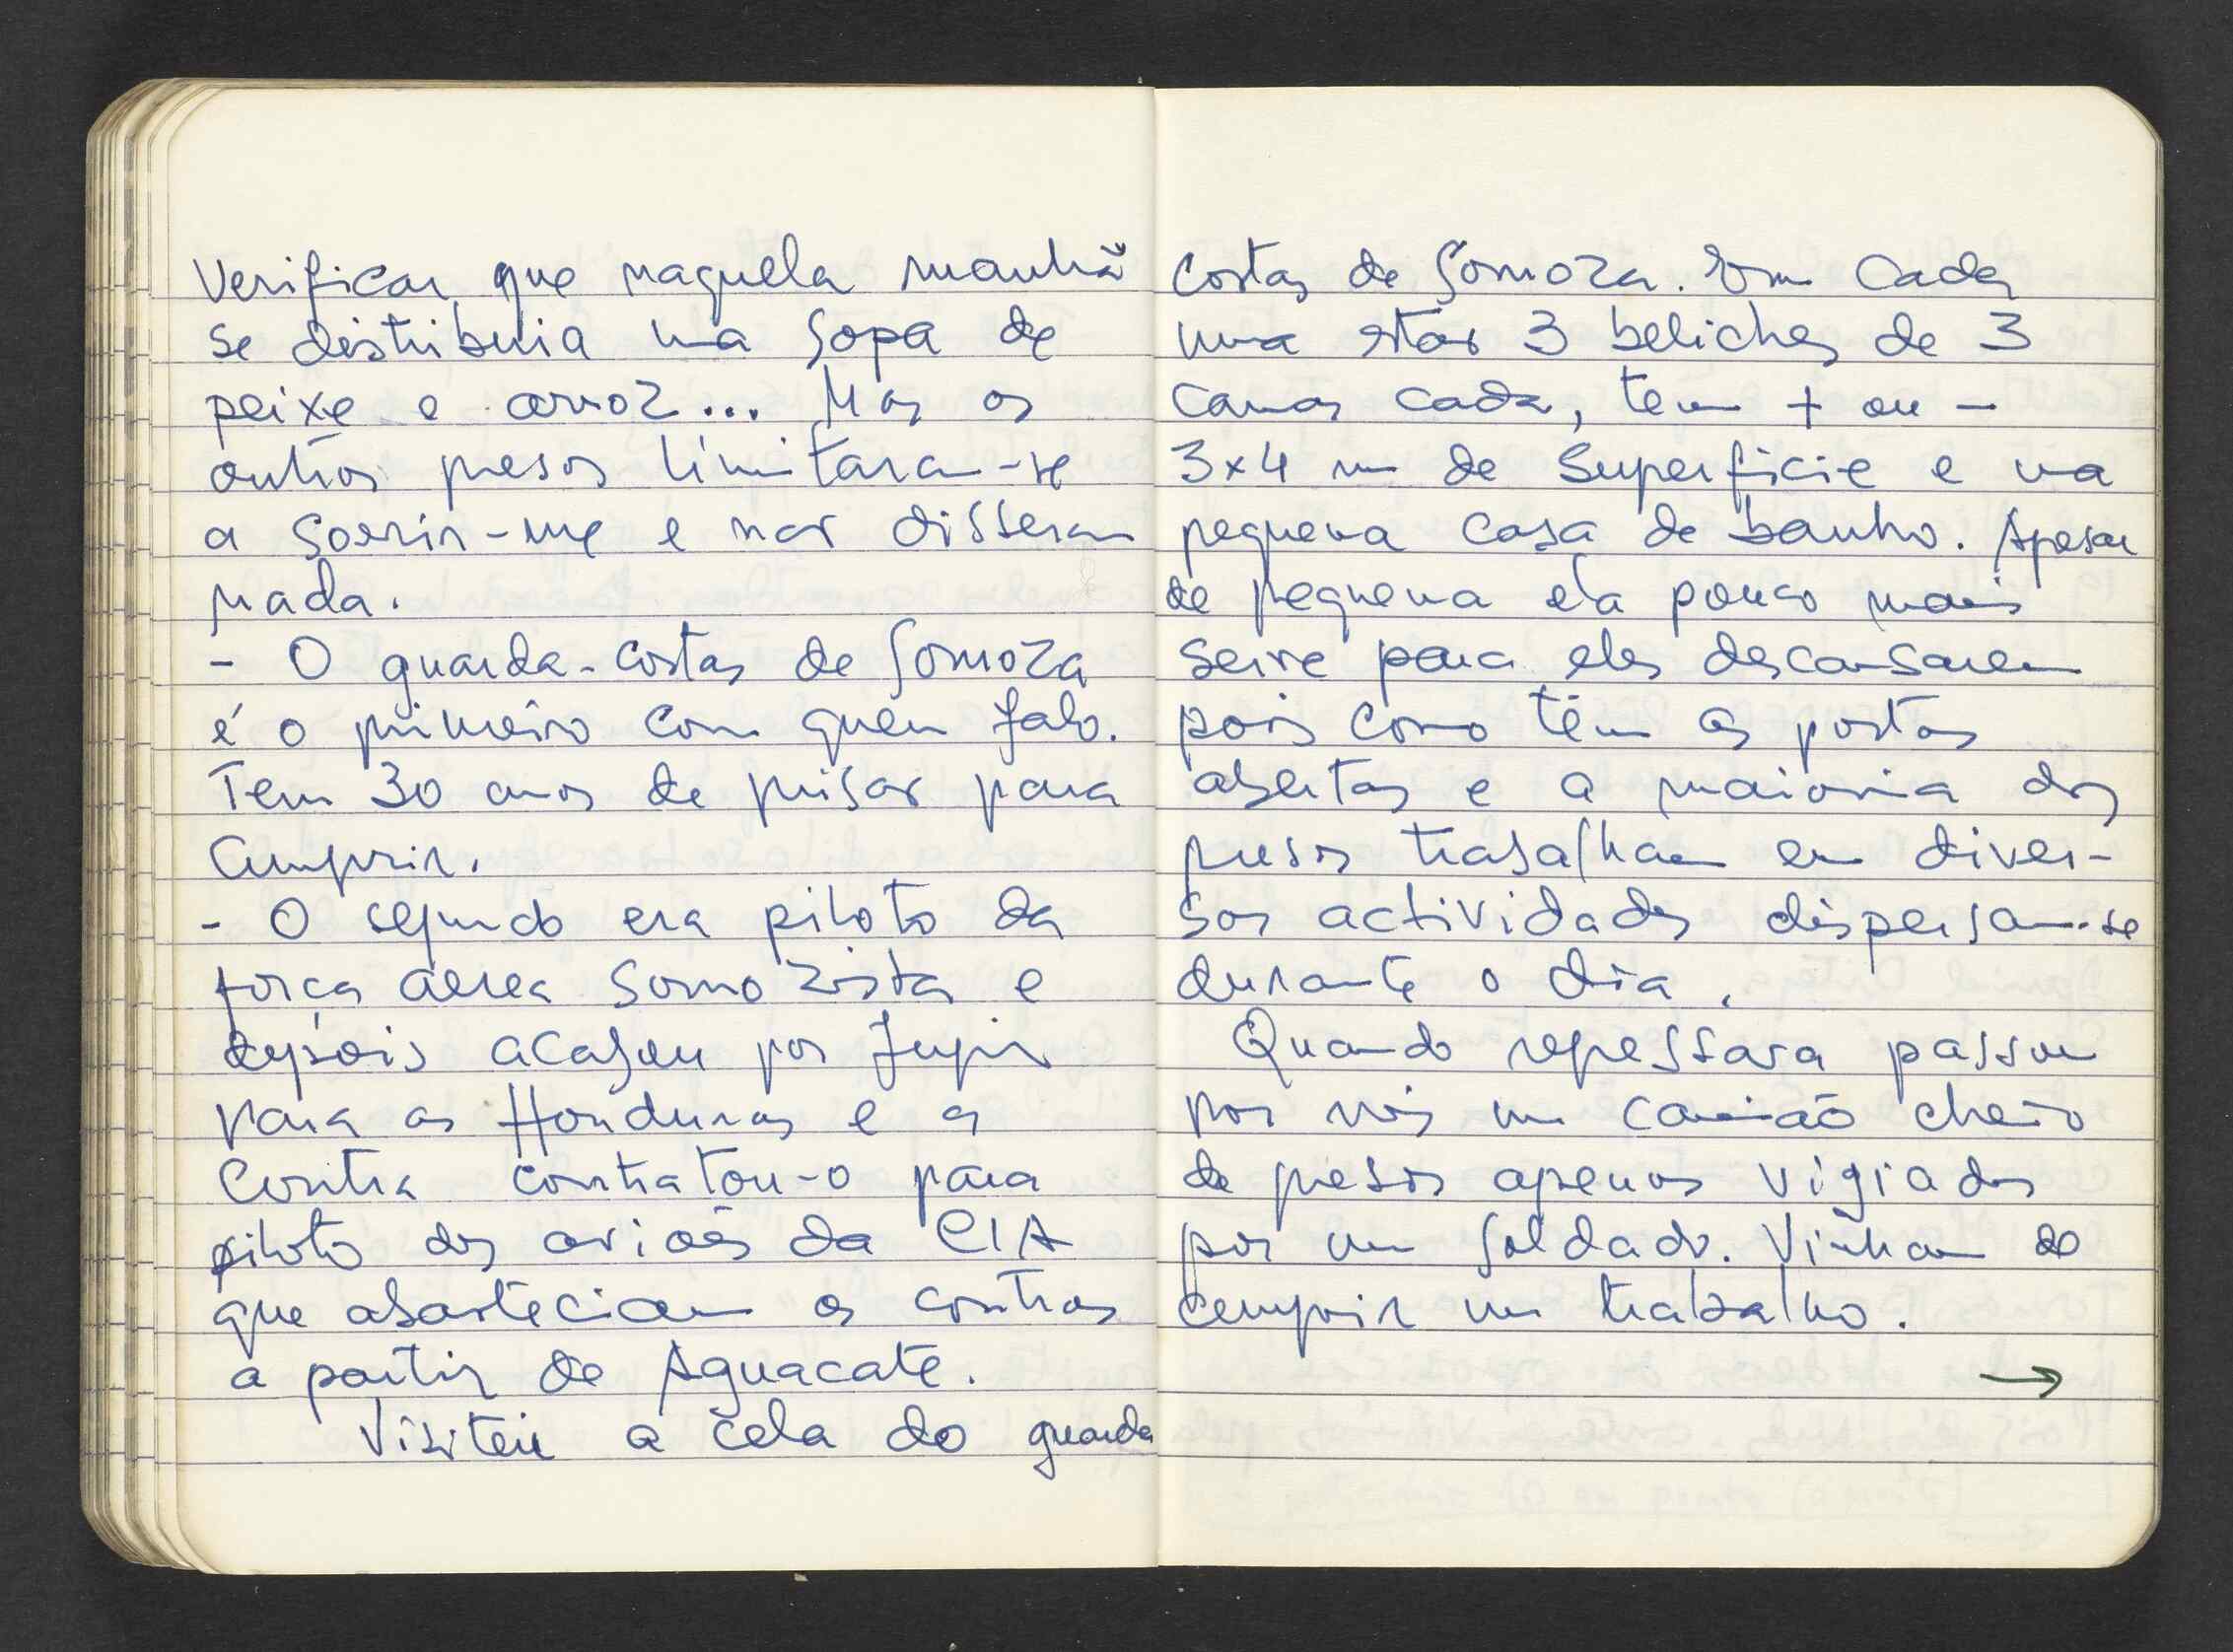 Verificar que naquela manhã
se distribuia uma sopa de
peixe e arroz... Mas os
outros presos limitaram-se
a sorrir-me e não disseram
nada.
- O guarda-costas de Somoza
é o primeiro com quem falo.
Tem 30 anos de prisão para
cumprir.
- O segundo era piloto da
força aérea somozista e
depois acabou por fugir
para as Honduras e a
Contra contratou-o para
piloto dos aviões da CIA
que abasteciam os contras
a partir de Aguacate.
Visitei a cela do guarda
costas de Somoza. Em cada
uma estão 3 beliches de 3
camas cada, tem + ou -
3x4 m de superficie e uma
pequena casa de banho. Apesar
de pequena ela pouco mais
serve para eles descansarem
pois como têm as portas
abertas e a maioria dos
presos trabalham em diver-
sas actividades dispersam-se
durante o dia.
Quando regressava passou
por nós um camião cheio
de presos apenas vigiados
por um soldado. Vinham de
cumprir um trabalho.
→